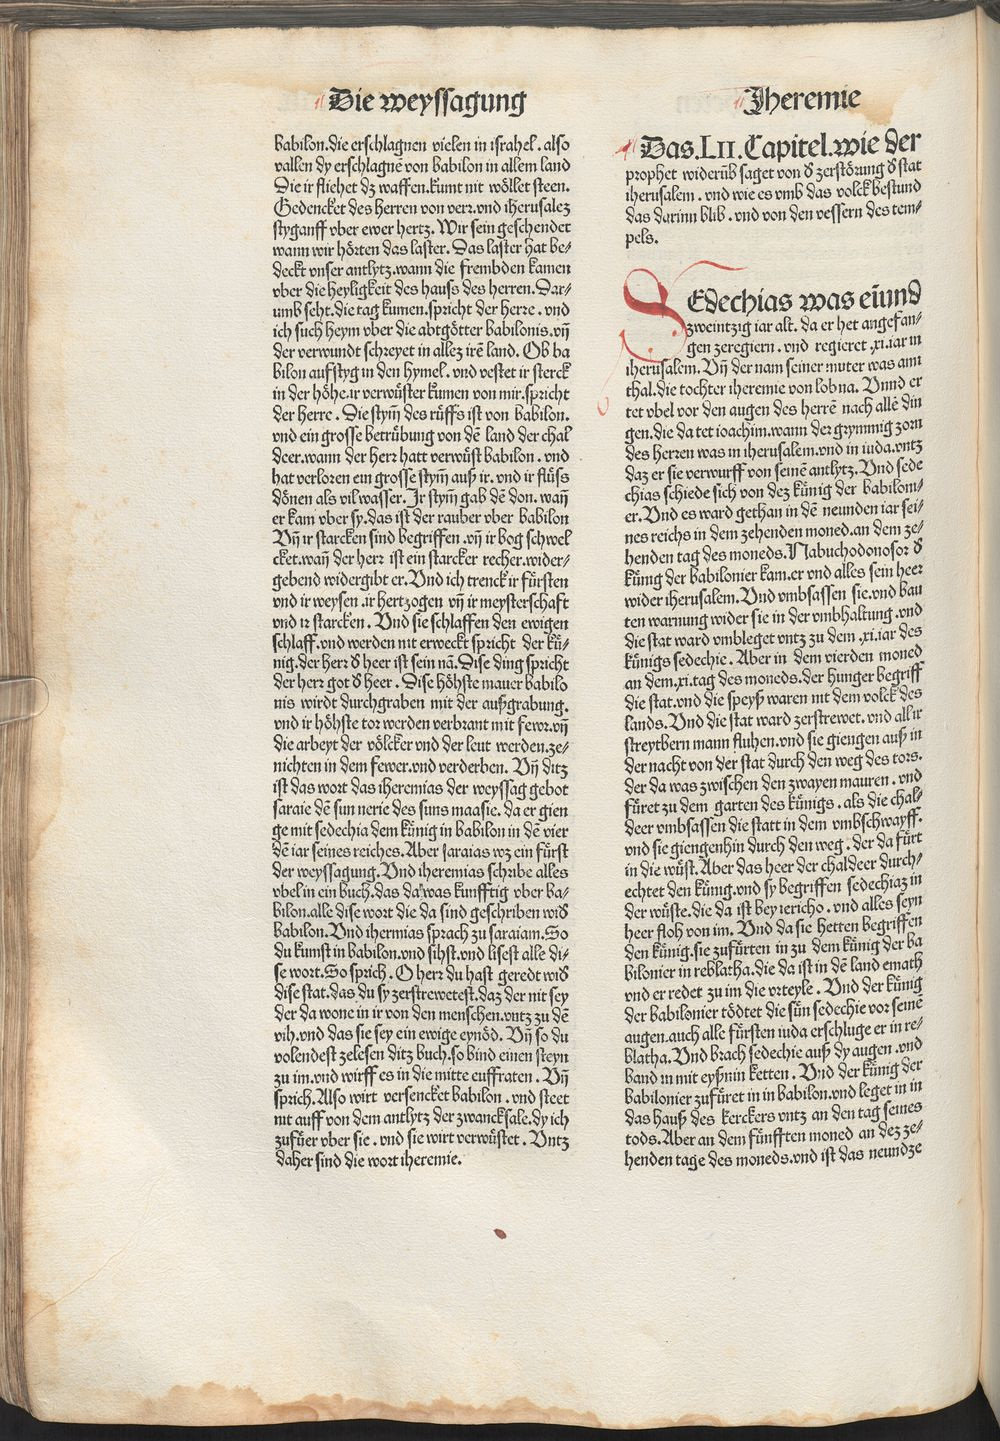 Die weyssagung
Jheremie
babilon.die erschlagnen vielen in israhel. also
vallen dy erschlagnē von babilon in allem land
Die ir fliehet dz waffen.kumt nit wöllet steen.
Gedencket des herren von verr.vnd iherusalez
styganff vber ewer hertz. Wir sein geschendet
wann wir hörten das laster. Das laster hat be⸗
deckt vnser antlytz.wann die frembden kamen
vber die heyligkeit des hauss des herren. Dar⸗
umb seht.die tag kumen.spricht der herre. vnd
ich such heym vber die abtgötter babilonis.vñ
der verwundt schreyet in allez irē land. Ob ba
bilon aufstyg in den hymel. vnd vestet ir sterck
in der höhe.ir verwüster kumen von mir.spricht
der herre. Die stym̄ des rüffs ist von babilon.
vnd ein grosse betrübung von dē land der chal
deer.wann der herr hatt verwüst babilon. vnd
hat verloren ein grosse stym̄ auß ir. vnd ir flüss
dönen als vil wasser. Ir stym̄ gab dē don. wañ
er kam vber sy.das ist der rauber vber babilon
Vñ ir starcken sind begriffen .vñ ir bog schwel
cket.wañ der herr ist ein starcker recher.wider⸗
gebend widergibt er. Vnd ich trenck ir fürsten
vnd ir weysen .ir hertzogen vñ ir meysterschaft
vnd ir starcken. Vnd sie schlaffen den ewigen
schlaff.vnd werden nit erweckt spricht der kü⸗
nig.der herr d̕ heer ist sein nā. Dise ding spricht
der herr got d̕ heer. Dise höhste mauer babilo
nis wirdt durchgraben mit der außgrabung.
vnd ir höhste tor werden verbrant mit fewr.vñ
die arbeyt der völcker vnd der leut werden.ze⸗
nichten in dem fewer.vnd verderben. Vñ ditz
ist das wort das iheremias der weyssag gebot
saraie dē sun nerie des suns maasie. da er gien
ge mit sedechia dem künig in babilon in dē vier
dē iar seines reiches. Aber saraias wz ein fürst
der weyssagung. Vnd iheremias schribe alles
vbel in ein buch.das da was kunfftig vber ba⸗
bilon.alle dise wort die da sind geschriben wid̕
babilon. Vnd ihermias sprach zu saraiam. So
du kumst in babilon.vnd sihst.vnd lisest alle di⸗
se wort. So sprich. O herr du hast geredt wid̕
dise stat.das du sy zerstrewetest.daz der nit sey
der da wone in ir von den menschen.vntz zu dē
vih.vnd das sie sey ein ewige eynöd. Vñ so du
volendest zelesen ditz buch.so bind einen steyn
zu im.vnd wirff es in die mitte euffraten. Vñ
sprich. Also wirt versencket babilon. vnd steet
nit auff von dem antlytz der zwancksale.dy ich
zufüer vber sie. vnd sie wirt verwüstet. Vntz
daher sind die wort iheremie.
Das.LII.Capitel.wie der
prophet widerūb saget von d̕ zerstörung d̕ stat
iherusalem. vnd wie es vmb das volck bestund
das darinn blib. vnd von den vessern des tem⸗
pels.
SEdechias was eiund
zweintzig iar alt. da er het angefan⸗
gen zeregiern. vnd regieret .xi.iar in
iherusalem. Vñ der nam seiner muter was ami
thal.die tochter iheremie von lobna. Vnnd er
tet vbel vor den augen des herrē nach allē din
gen.die da tet ioachim.wann der grymmig zorn
des herren was in iherusalem.vnd in iuda.vntz
daz er sie verwurff von seinē antlytz. Vnd sede
chias schiede sich von dez künig der babiloni⸗
er. Vnd es ward gethan in dē neunden iar sei⸗
nes reichs in dem zehenden moned.an dem ze⸗
henden tag des moneds. Nabuchodonosor d̕
künig der babilonier kam.er vnd alles sein heer
wider iherusalem. Vnd vmbsassen sie.vnd bau
ten warnung wider sie in der vmbhaltung .vnd
die stat ward vmbleget vntz zu dem .xi.iar des
künigs sedechie. Aber in dem vierden moned
an dem.xi.tag des moneds.der hunger begriff
die stat.vnd die speyß waren nit dem volck des
lands. Vnd die stat ward zerstrewet.vnd all ir
streytbern mann fluhen.vnd sie giengen auß in
der nacht von der stat durch den weg des tors.
der da was zwischen den zwayen mauren. vnd
füret zu dem garten des künigs. als die chal⸗
deer vmbsassen die statt in dem vmbschwayff.
vnd sie giengen hin durch den weg. der da fürt
in die wüst. Aber das heer der chaldeer durch⸗
echtet den künig.vnd sy begriffen sedechiaz in
der wüste.die da ist bey iericho. vnd alles seyn
heer floh von im. Vnd da sie hetten begriffen
den künig.sie zufürten in zu dem künig der ba
bilonier in reblatha.die da ist in dē land emath
vnd er redet zu im die vrteyle. Vnd der künig
der babilonier tödtet die sün sedechie vor seinē
augen.auch alle fürsten iuda erschluge er in re⸗
blatha. Vnd brach sedechie auß dy augen .vnd
band in mit eyßnin ketten. Vnd der künig der
babilonier zufüret in in babilon.vnd leget in in
das hauß des kerckers vntz an den tag seines
tods. Aber an dem fünfften moned an dez ze⸗
henden tage des moneds.vnd ist das neundze